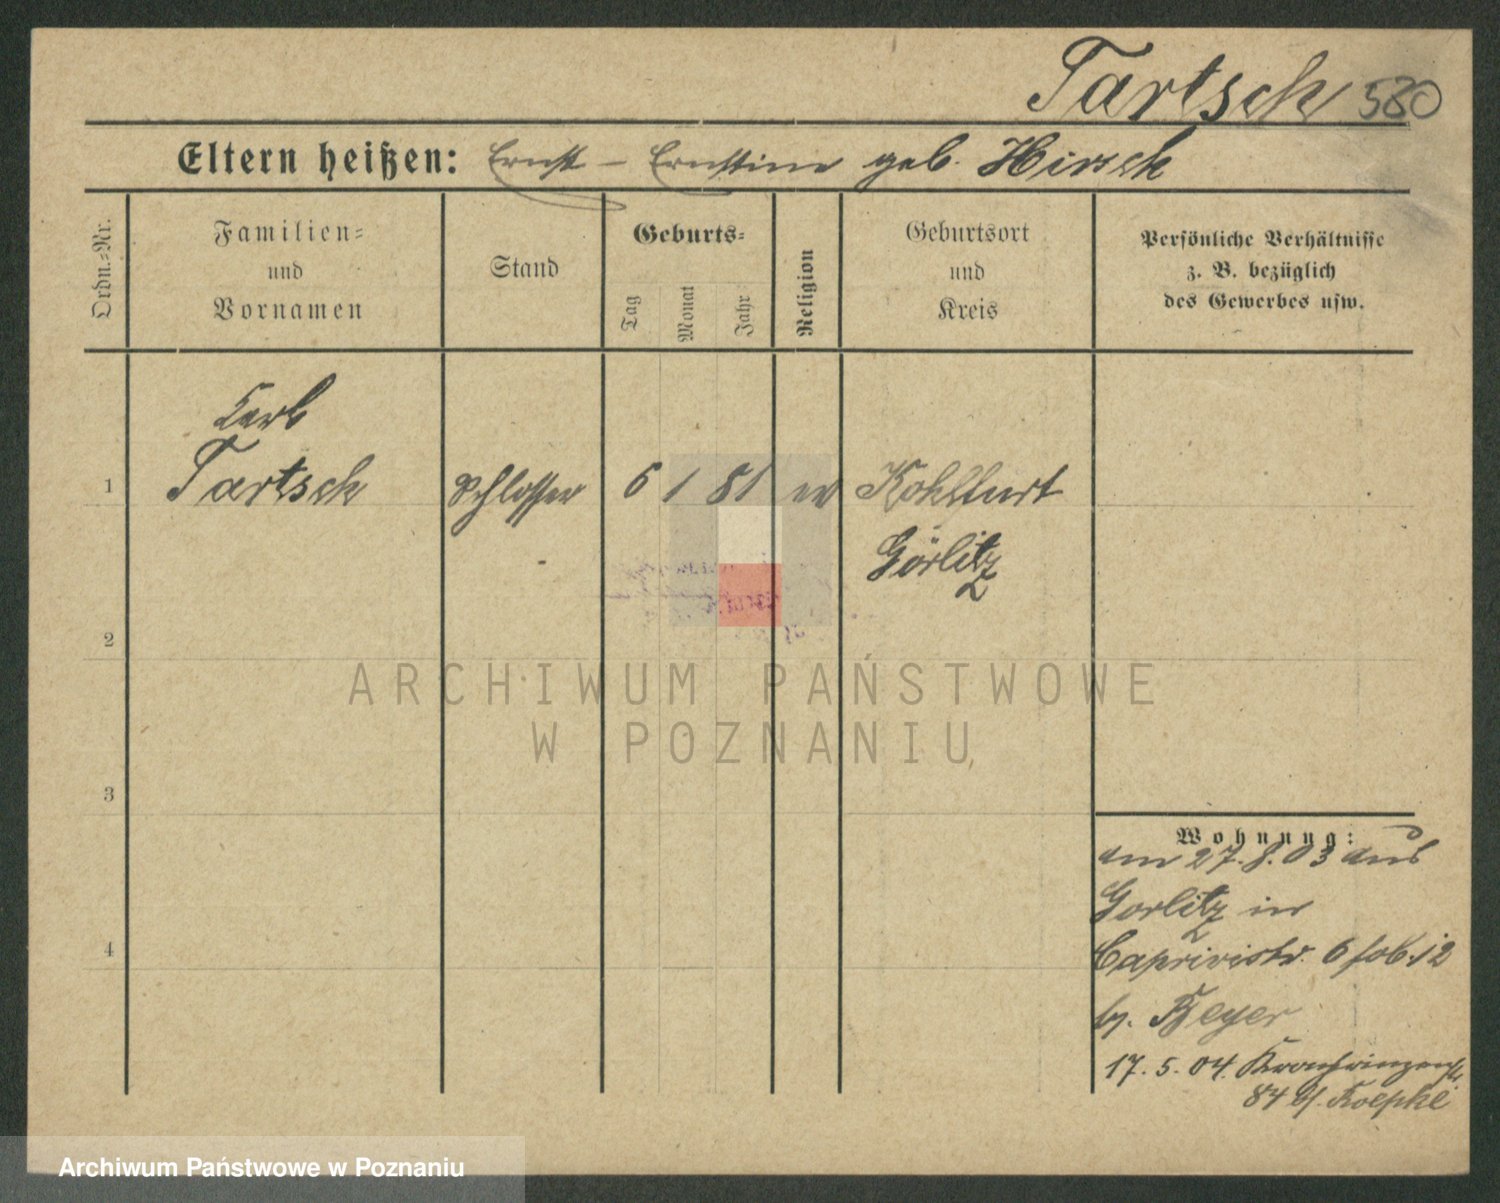 Tartsch 580
Eltern heißen: Ernst – Ernstine geb. Hirsch
Ordn.=Nr.
Familien=
und
Vornamen
Stand
Geburts=
Tag
Monat
Jahr
Religion
Geburtsort
und
Kreis
Persönliche Verhältnisse
z. B. bezüglich
des Gewerbes usw.
Karl
1 Tartsch Schlosser 6 1 81 ev Kohlfurt
Görlitz
2
ARCHIWUM PAŃSTWOWE
W POZNANIU
3
Wohnung:
am 27.8.03 aus
Gorlitz in
Caprivistr. 6 12
b/. Beyer
17.5.04. Kronprinzenstr.
84 b/. Koepke
4
Archiwum Państwowe w Poznaniu